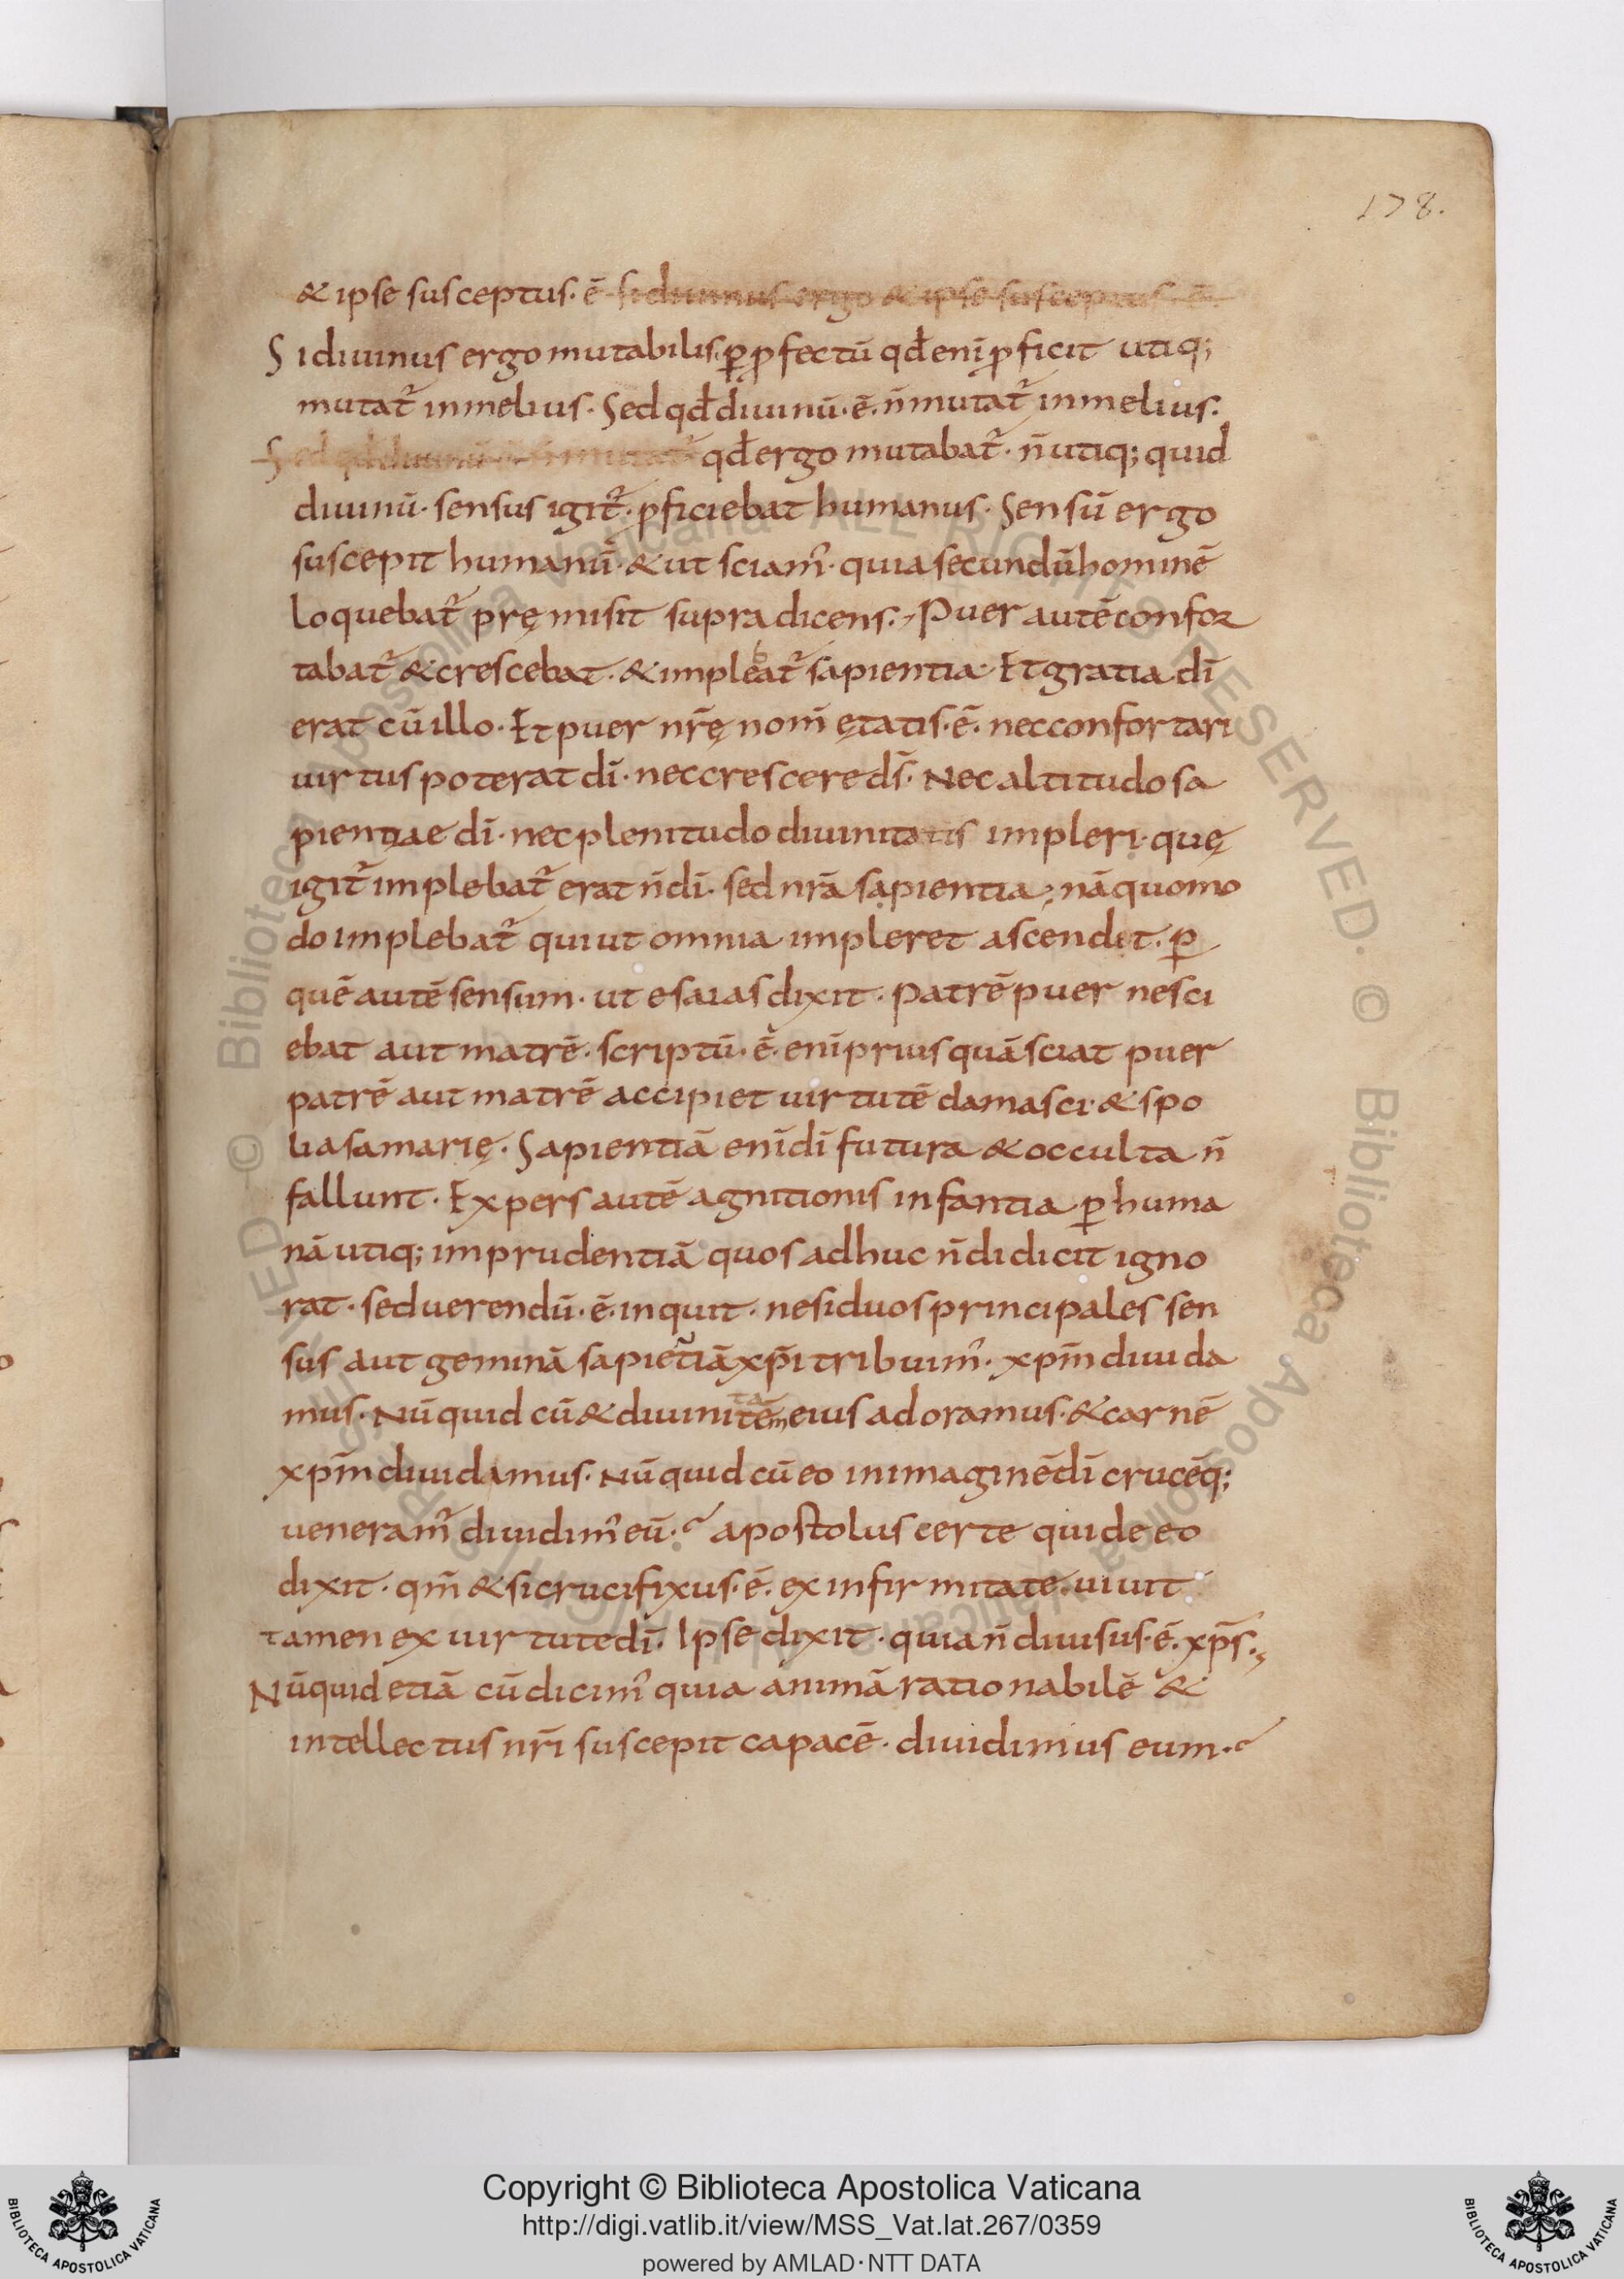 178.
& ipse susceptus. ē si diuinus ergo & ipse susceptus. ē.
Si diuinus ergo mutabilis. ꝑ ꝓfectū qđ eni ̄ ꝓficit utiq;
mutat᷒ in melius. Sed qđ diuinū. ē. n̄ mutat᷒ in melius.
Sed qđ diuinū ē n̄ mutat᷒ qđ ergo mutabat᷒. n̄ utiq; quid
diuinū. sensus igit᷒. ꝓficiebat humanus. Sensū ergo
suscepit humanū. & ut sciam᷒. quia secundū hominē
loquebat᷒ pręmisit supra dicens. Puer autē confor
tabat᷒ & crescebat. & implebat᷒ sapientia. Et gratia dī
erat cū illo. Et puer nr̄ę nom̄ ętatis. ē. nec confortari
uirtus poterat dī. nec crescere ds̄. Nec altitudo sa
pientiae dī. nec plenitudo diuinitatis impleri. quę
igit᷒ implebat᷒ erat n̄ dī. sed nrā sapientia; nā quomo
do implebat᷒ qui ut omnia impleret ascendit. ꝑ
quē autē sensum. ut esaias dixit. Patrē puer nesci
ebat aut matrē. scriptū. ē. enī priusquā sciat puer
patrē aut matrē accipiet uirtutē damasci. & spo
lia samarię. Sapientiā enī dī futura & occulta n̄
fallunt. Expers autē agnitionis infantia ꝑ huma
nā utiq; imprudentiā quos adhuc n̄ didicit igno
rat. sed uerendū. ē. inquit. ne si duos principales sen
sus aut geminā sapiētiā xp̄i tribuim᷒. xpm̄ diuida
mus. Nūquid cū & diuinitatēm eius adoramus. & carnē
xpm̄ diuidamus. Nūquid cū eo in imaginē dī crucēq;
ueneram᷒ diuidim᷒ eū.? apostolus certe qui de eo
dixit. qm̄ & si crucifixus. ē. ex infirmitate. uiuit
tamen ex uirtute dī. Ipse dixit. quia n̄ diuisus. ē. xp̄s.,
Nūquid etiā cū dicim᷒ quia animā rationabilē &
intellectus nr̄i suscepit capacē. diuidimus eum.?
© Biblioteca Apostolica Vaticana ALL RIGHTS RESERVED. © Biblioteca Apostolica Vaticana ALL RIGHTS RESERVED
BIBLIOTECA APOSTOLICA VATICANA
Copyright © Biblioteca Apostolica Vaticana
http://digi.vatlib.it/view/MSS_Vat.lat.267/0359
powered by AMLAD·NTT DATA
BIBLIOTECA APOSTOLICA VATICANA